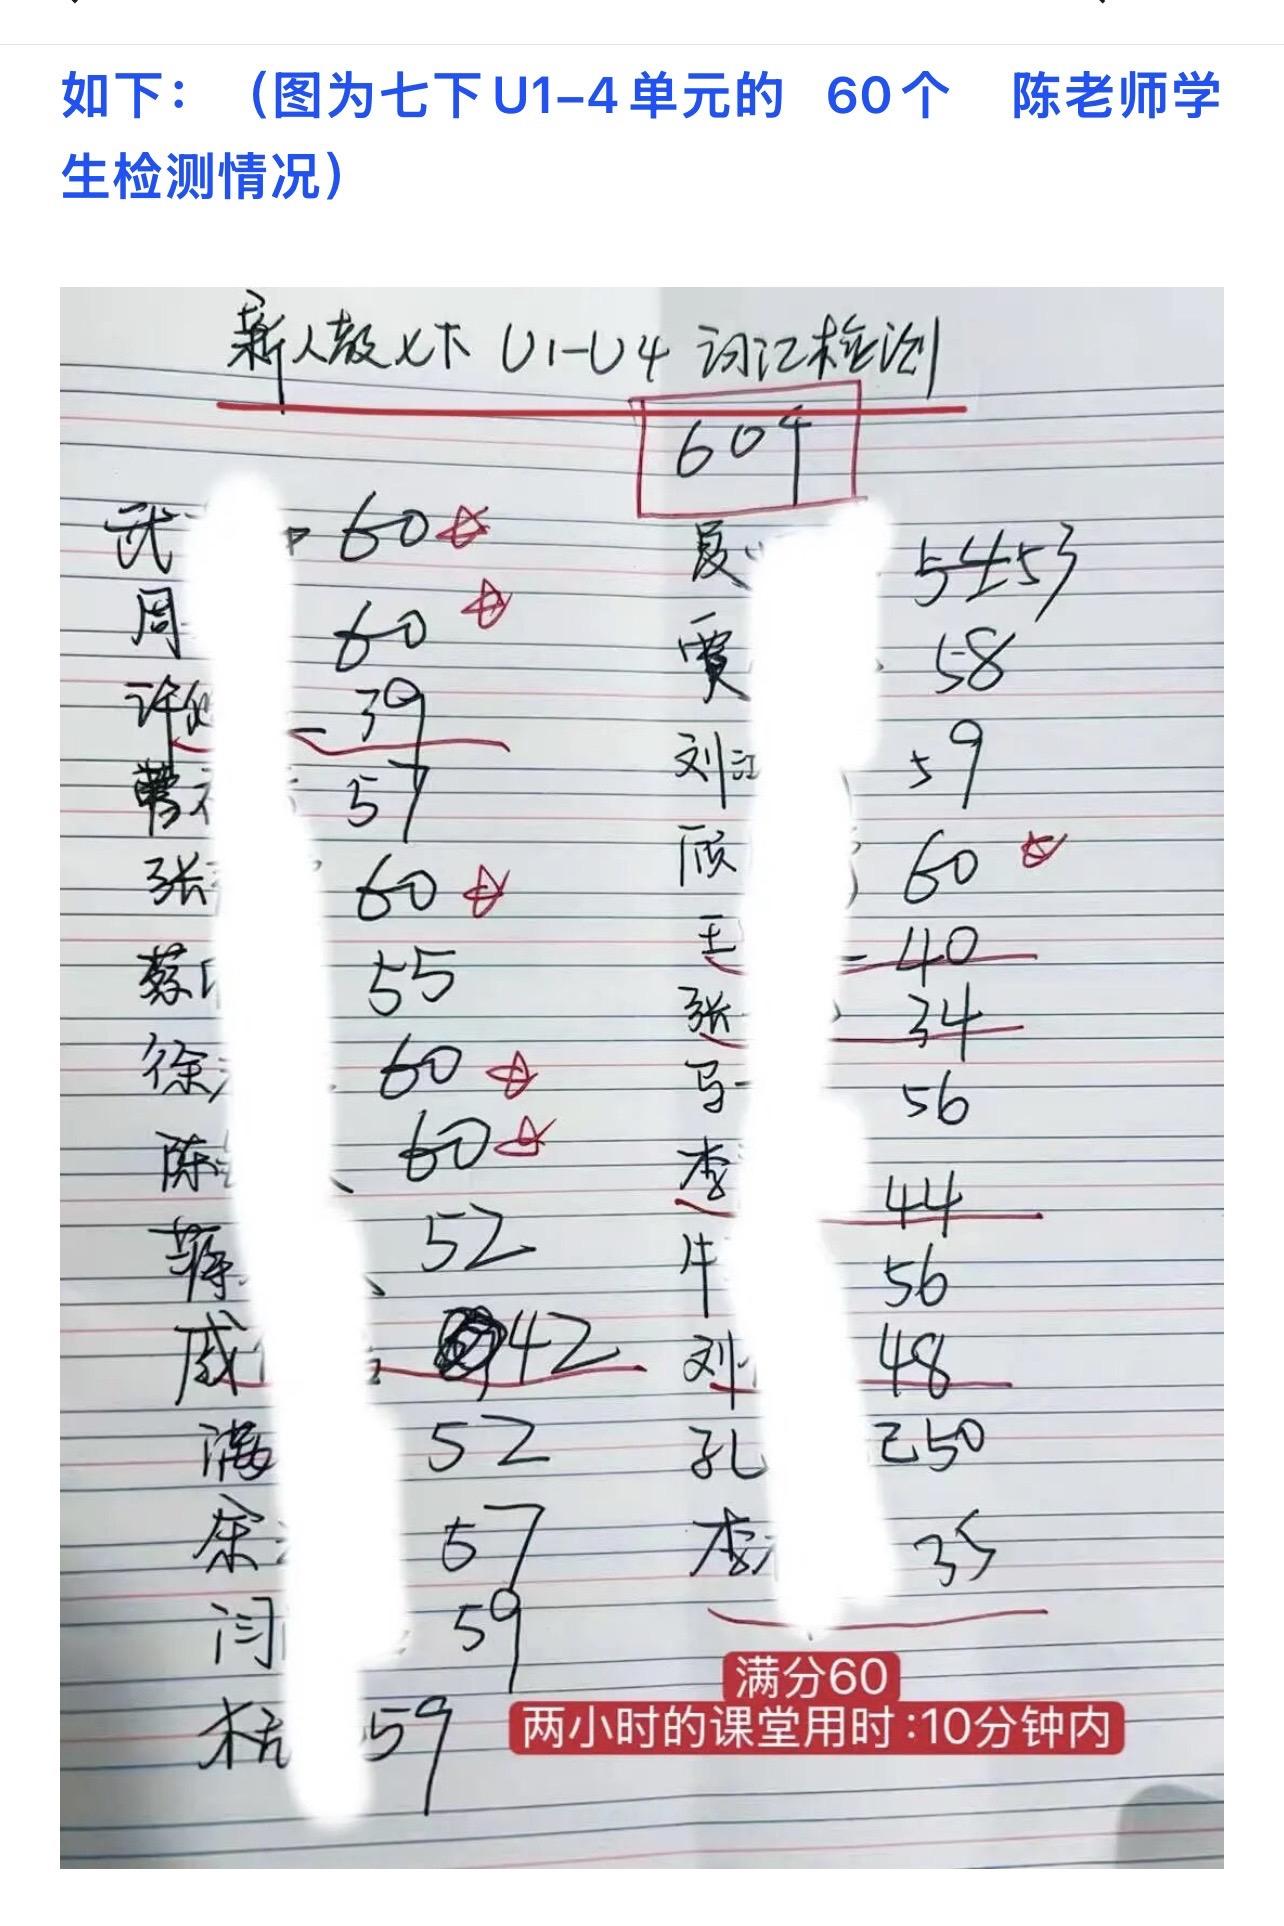 如下：（图为七下U1-4单元的 60个 陈老师学
生检测情况）
新人教七下 U1-U4 词汇检测
60个
武 60
周 60
许 39
曹 57
张 60
蔡 55
徐 60
陈 60
薛 52
戚 42
满 52
余 57
闫 59
59
夏 54 53
贾 58
刘江 59
顾 60
王 40
张 34
马 56
李 44
牛 56
刘 48
孔 己50
李 35
满分60
两小时的课堂用时:10分钟内